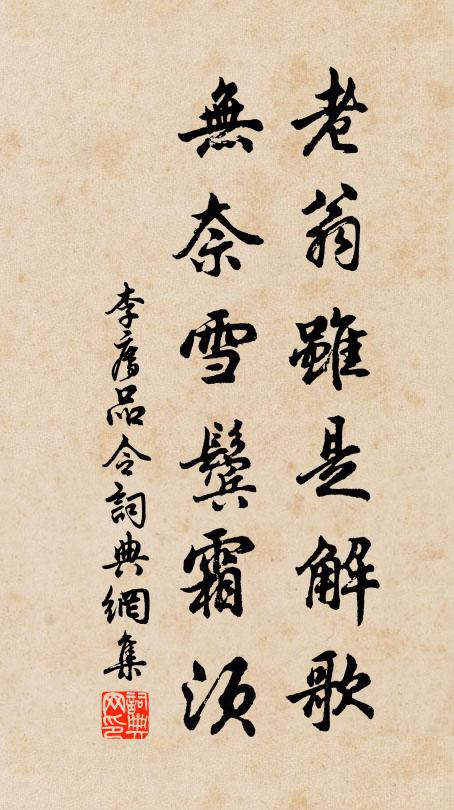 老翁雖是解歌
無奈雪鬢霜須
李廌品令詞典網集
詞典网印